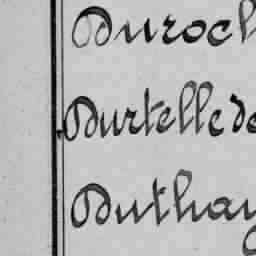 Duroch
Durtelle de
Duthay